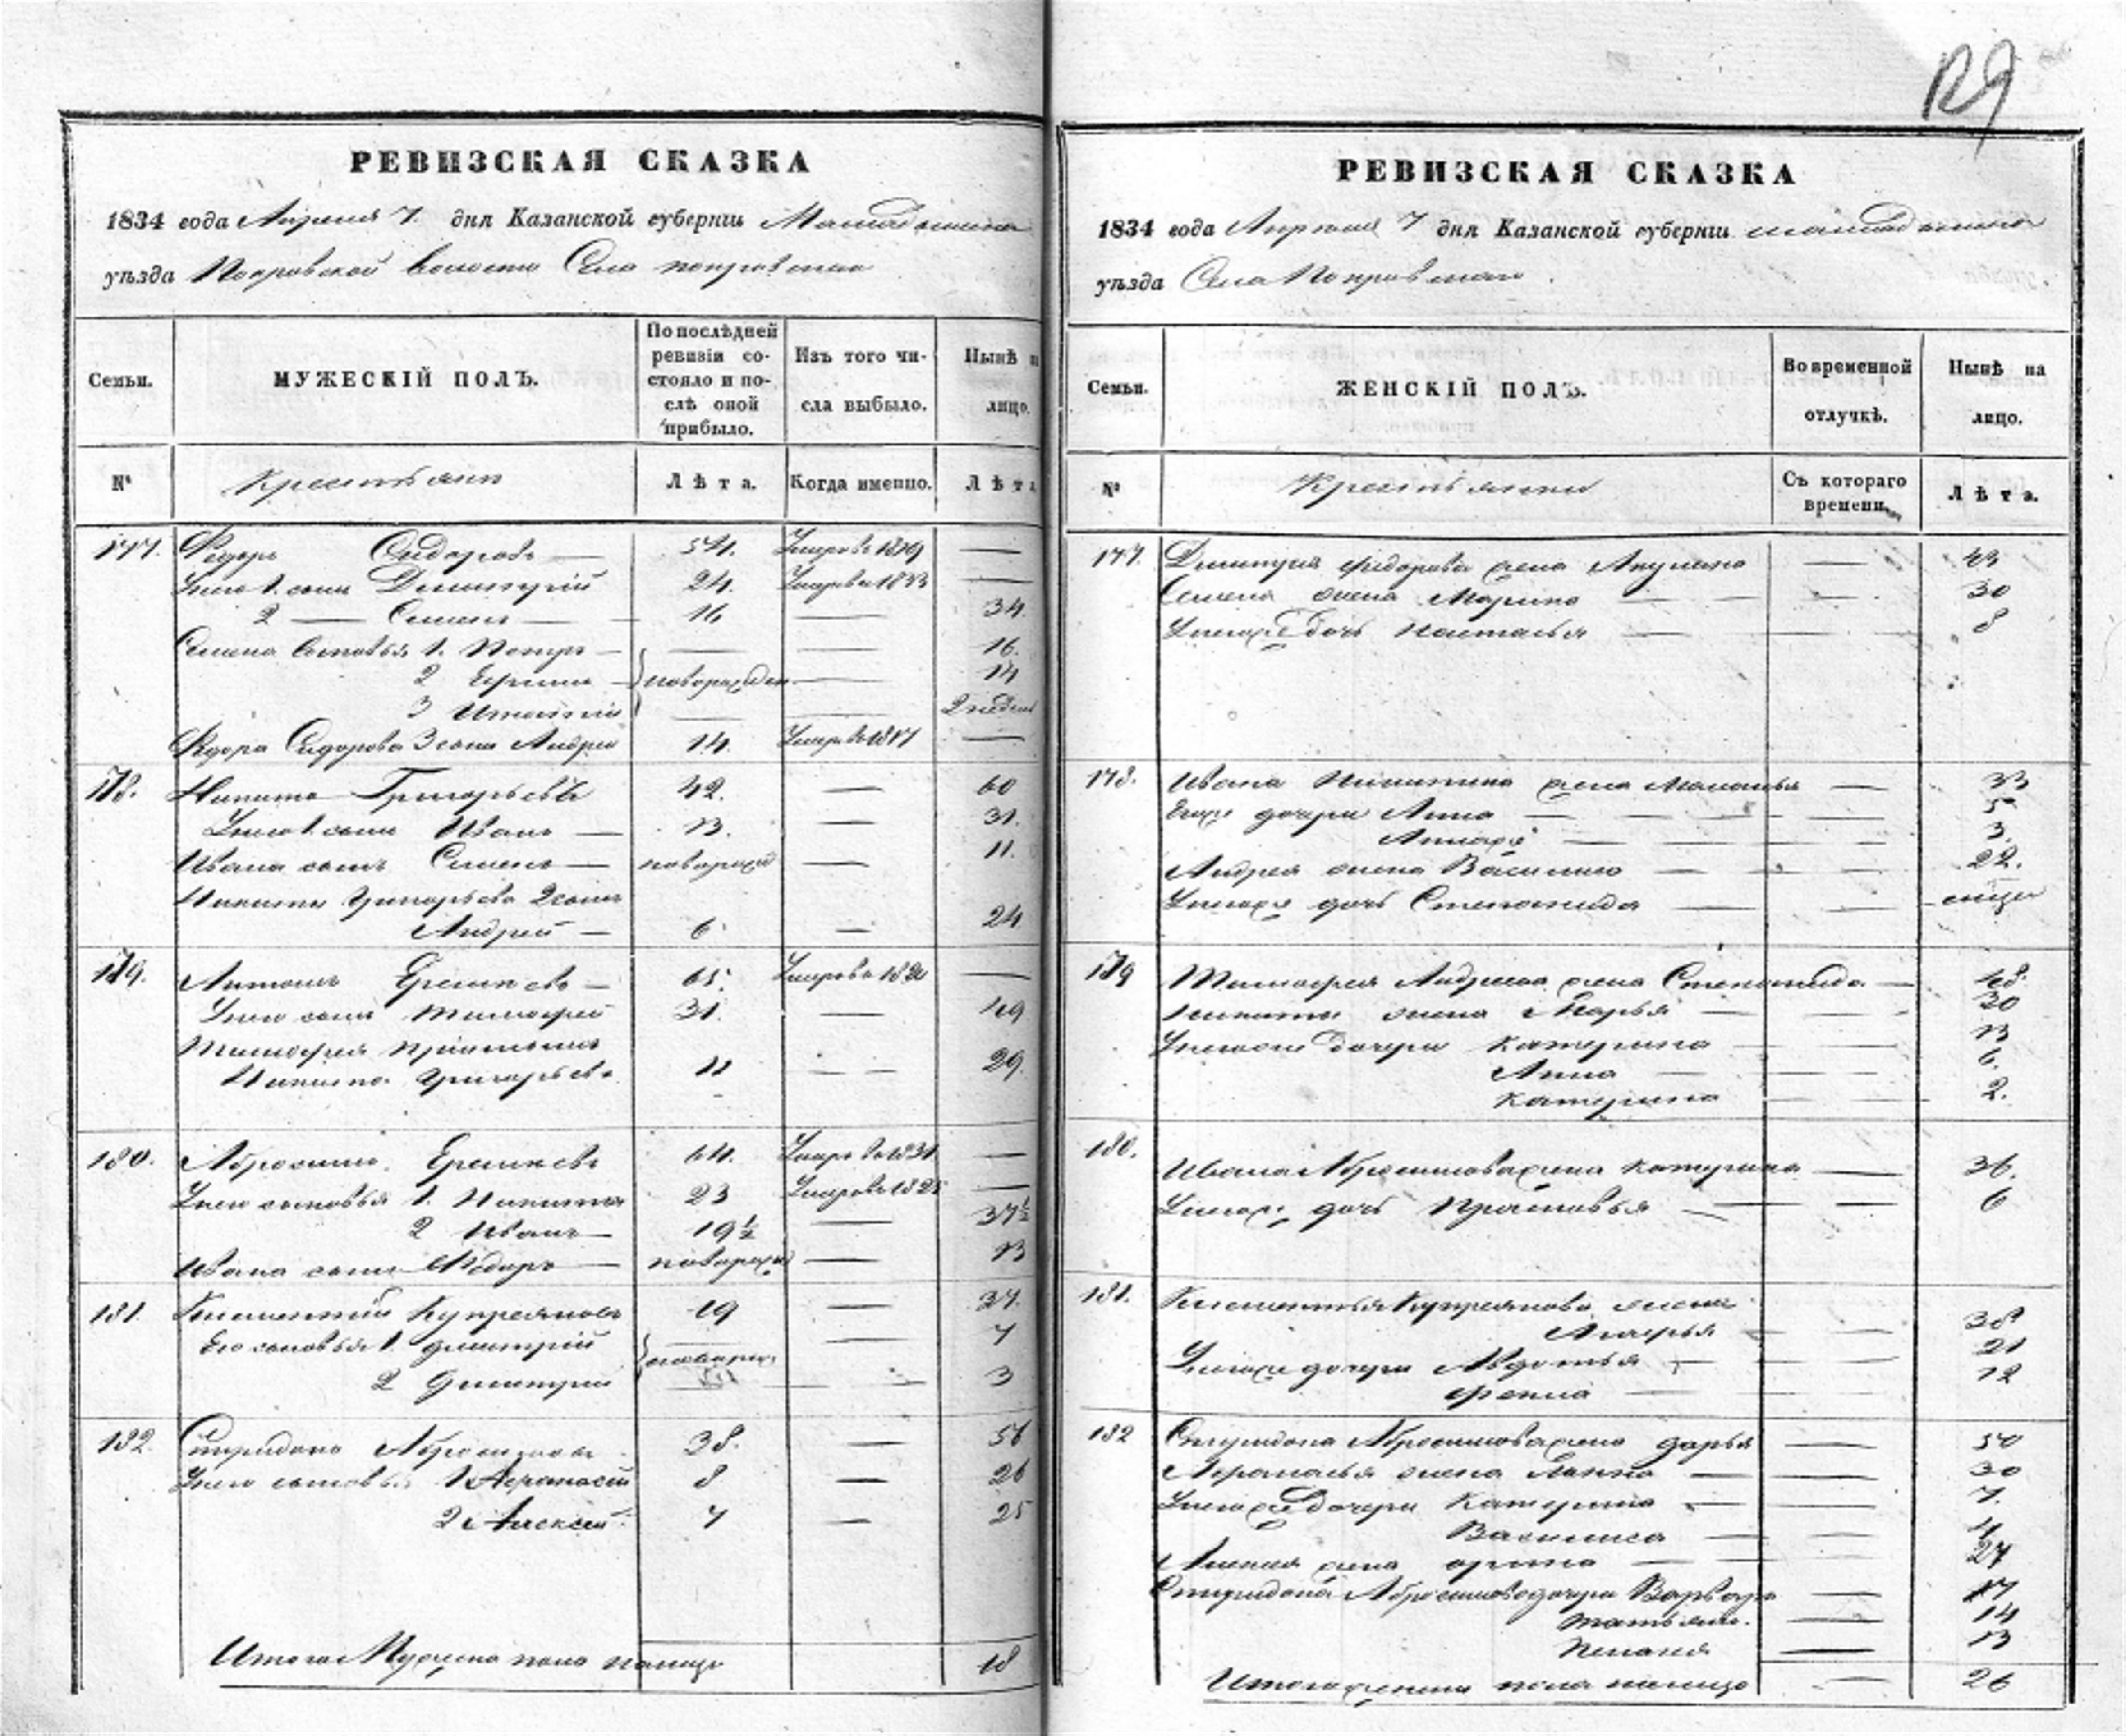 129
РЕВИЗСКАЯ СКАЗКА
1834 года Апреля 7. дня Казанской губерніи Мамадышскаго
уѣзда Покровской волости Села покровскаго
Семьи.
МУЖЕСКІЙ ПОЛЪ.
По послѣдней ревизіи состояло и послѣ оной прибыло.
Изъ того числа выбыло.
Нынѣ на лицо.
№
Крестьяне
Лѣта.
Когда именно.
Лѣта
177. Федоръ Сидоровъ — 54. Умеръ въ 1819 —
У него 1. сынъ Димитрій 24. Умеръ в 1833 —
2 — Семенъ — 16 — 34.
Семена сыновья 1. Петръ — — — 16.
2 Ефимъ — новорожден — 14
3 Игнатій — — 2 недели
Федора Сидорова 3 сынъ Андрей 14. Умеръ в 1817 —
178. Никита Григорьевъ 42. — 60
У него 1. сынъ Иванъ — 13. — 31.
Ивана сынъ Семенъ — новорожд — 11.
Никиты Григорьева 2 сынъ
Андрей — 6 — 24
179. Еремѣевъ — 65. Умеръ в —
У него сынъ Тимофей 31. — 49
Тимофея
Никита Григорьевъ 11 — — 29.
180. Абросимъ Еремѣевъ 64. Умеръ в 1831 —
У него сыновья 1. Никита 23 Умеръ в —
2 Иванъ — 19½ — 37½
Ивана сынъ Федоръ — новорожд — 13
181. Климентій Купреяновъ 19 — 37.
Его сыновья 1. Дмитрій — — 7
2 Димитрій — — 3
182. Спиридонъ Абросимовъ 38. — 56
У него сыновья 1 Афанасій 8 — 26
2 Алексей 7 — 25
Итого Мужеска пола на лицо 18
РЕВИЗСКАЯ СКАЗКА
1834 года Апреля 7 дня Казанской губерніи мамадышскаго
уѣзда Села Покровскаго.
Семьи.
ЖЕНСКІЙ ПОЛЪ.
Во временной отлучкѣ.
Нынѣ на лицо.
№
Крестьянки
Съ котораго времени.
Лѣта.
177. Димитрія федорова жена Акулина — 43
Семена жена Марина — — 30
У него же дочь Наталья — — 8
178. Ивана Никитина жена Маланья — 33
Ево же дочери Анна — — 5
— — 3.
Андрея жена Василиса — — 22.
У него же дочь Степанида — —
179 Тимофея Андреева жена Степанида — 48.
Никиты жена Марья — — 30
У него же дочери Катерина — — 13
Анна — — 6.
Катерина — — 2.
180. Ивана Абросимова жена Катерина — 36.
У него же дочь Прасковья — — 6
181. Климентья Купреянова жена
— — 38
У него же дочери Авдотья — — 21
Фекла — — 12
182 Спиридона Абросимова жена Дарья — 50
Афанасья жена — — 30
У него же дочери Катерина — — 7.
Василиса — —
Алексея жена Орина — — 27
Спиридона Абросимова дочери Варвара — 17
Татьяна. — 14
Пелагея — 13
Итого женска пола на лицо — 26